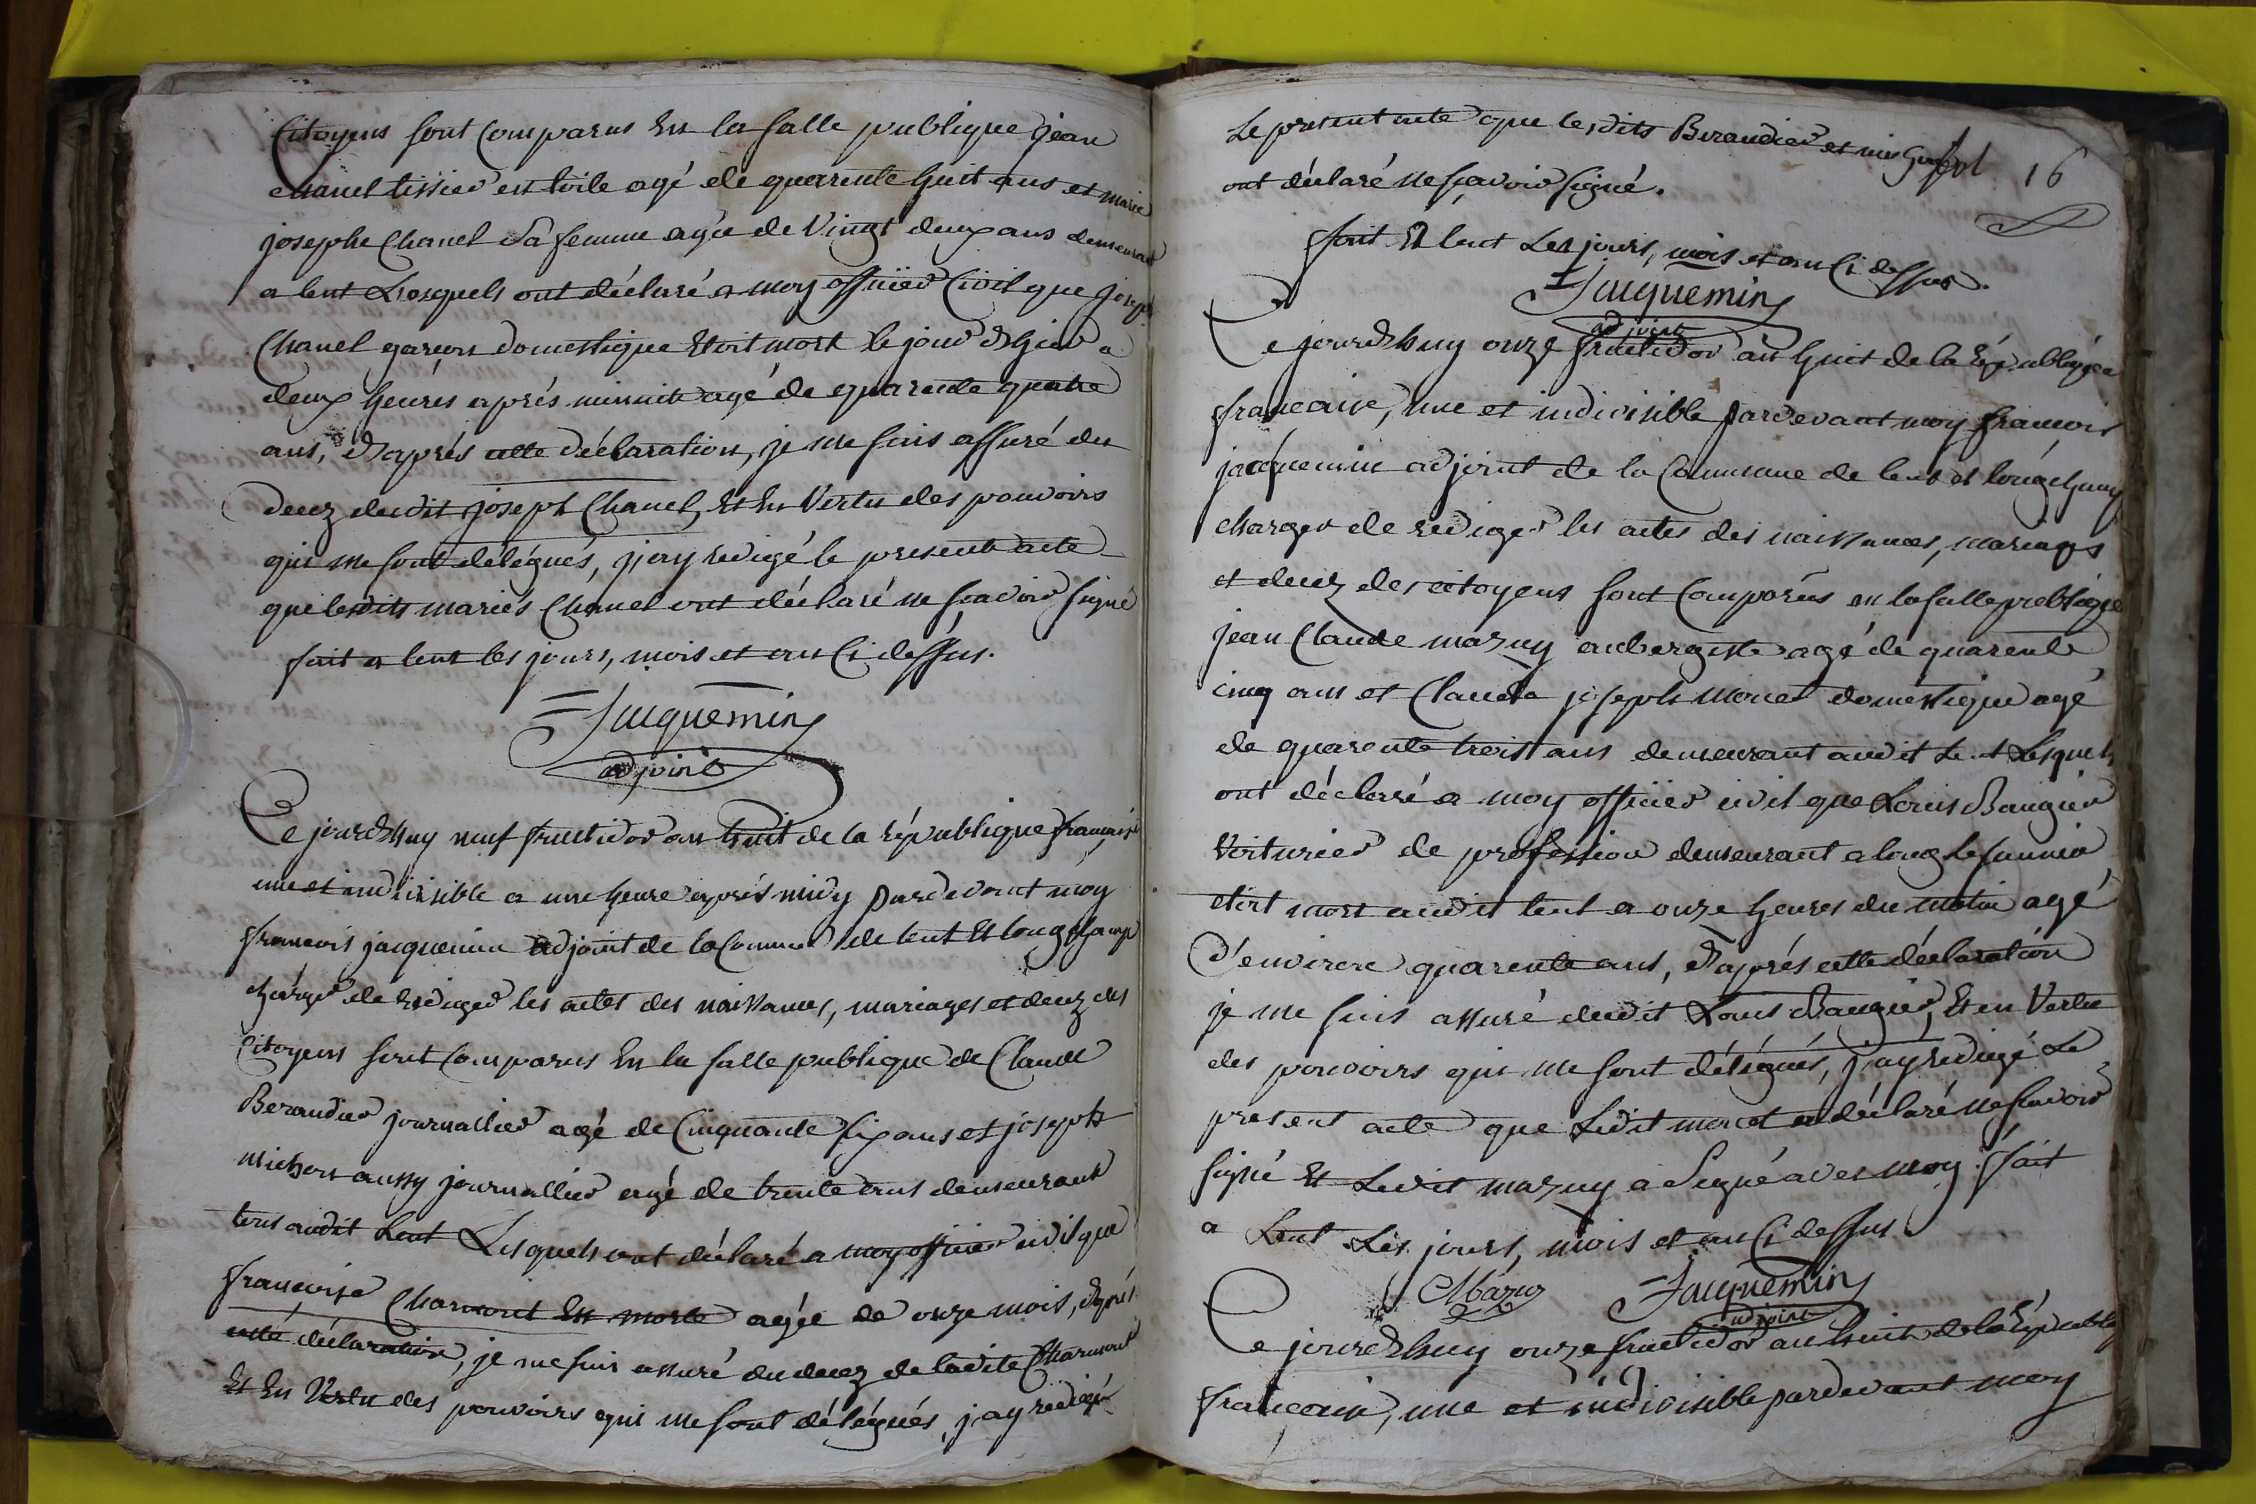 Citoyens sont Comparus En la salle publique jean
chanel tissier en toile agé de quarente huit ans et marie
josephe Chanel Sa femme agée de Vingt deux ans demeurant
a lent Lesquels ont déclaré a moy officier Civil que joseph
Chanel garçon domestique Etoit mort le jour d'hier a
deux heures aprés minuit agé de quarente quatre
ans, d'aprés cette déclaration, je me suis assuré du
decez dudit joseph Chanel, Et En Vertu des pouvoirs
qui me sont délégués, j'ay redigé le present acte
que lesdits mariés Chanel ont déclaré ne scavoir signé
fait a lent les jours, mois et an Ci dessus.
Jacquemin
adjoint
Ce jourd'huy neuf fructidor an huit de la république française
une et indivisible a une heure aprés midy Pardevant moy
francois jacquemin adjoint de la Commune de lent Et longchamp
chargé de rediger les actes des naissances, mariages et decez des
Citoyens sont Comparus En la salle publique de Claude
Beraudier journallier agé de Cinquante six ans et joseph
michon aussy journallier agé de trente ans demeurant
tous audit Lent Lesquels ont déclaré a moy officier civil que
francoise Charmont Est morte agée de onze mois, d'aprés
cette déclaration, je me suis assuré du decez de ladite Charmont
Et En Vertu des pouvoirs qui me sont délégués, j'ay redigé
Le present acte que lesdits Beraudier et
ont déclaré ne scavoir signé.
fol 16
fait Et lent Les jours, mois et an Ci dessus.
Jacquemin
adjoint
Ce jourd'huy onze fructidor an huit de la République
francaise, une et indivisible Pardevant moy francois
jacquemin adjoint de la Commune de lent et longchamp
charger de rediger les actes des naissances, mariages
et decez des citoyens sont Comparus en la salle publique
jean Claude mazuy aubergiste agé de quarente
cinq ans et Claude joseph moret domestique agé
de quarente trois ans demeurant audit Lent Lesquels
ont déclaré a moy officier civil que Louis Baugier
Voiturier de profession demeurant a long le
etoit mort audit lent a onze heures du matin agé
d'environ quarente ans, d'aprés cette déclaration
je me suis assuré dudit Louis Baugier, Et en Vertu
des pouvoirs qui me sont délégués, j'ay redigé Le
present acte que Ledit moret a déclaré ne scavoir
signé Et Ledit mazuy a Signé avec moy. fait
a Lent Les jours, mois et an Ci dessus.
Mazuy Jacquemin
adjoint
Ce jourd'huy onze fructidor an huit de la Républiq
francaise, une et indivisible pardevant moy